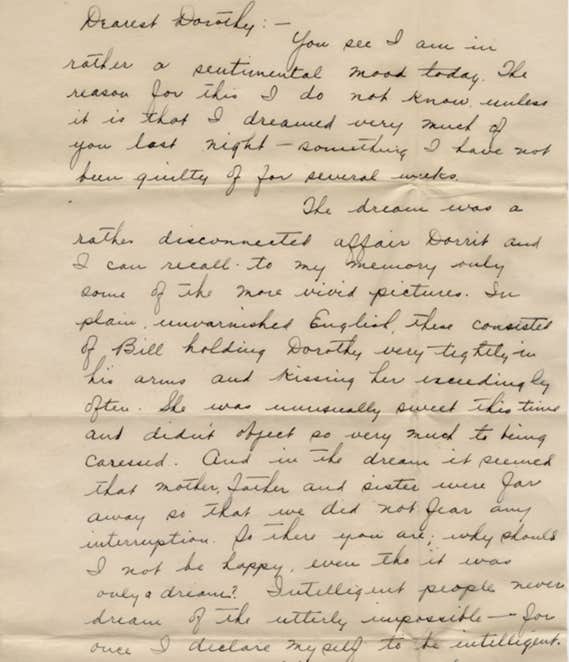 Dearest Dorothy:-
You see I am in
rather a sentimental mood today. The
reason for this I do not know, unless
it is that I dreamed very much of
you last night - something I have not
been guilty of for several weeks.
The dream was a
rather disconnected affair Dorrit and
I can recall to my memory only
some of the more vivid pictures. In
plain, unvarnished English, these consisted
of Bill holding Dorothy very tightly in
his arms and kissing her exceedingly
often. She was unusually sweet this time
and didn't object so very much to being
caressed. And in the dream it seemed
that mother, father and sister were far
away so that we did not fear any
interruption. So there you are; why should
I not be happy, even tho it was
only a dream? Intelligent people never
dream of the utterly impossible - for
once I declare myself to be intelligent.